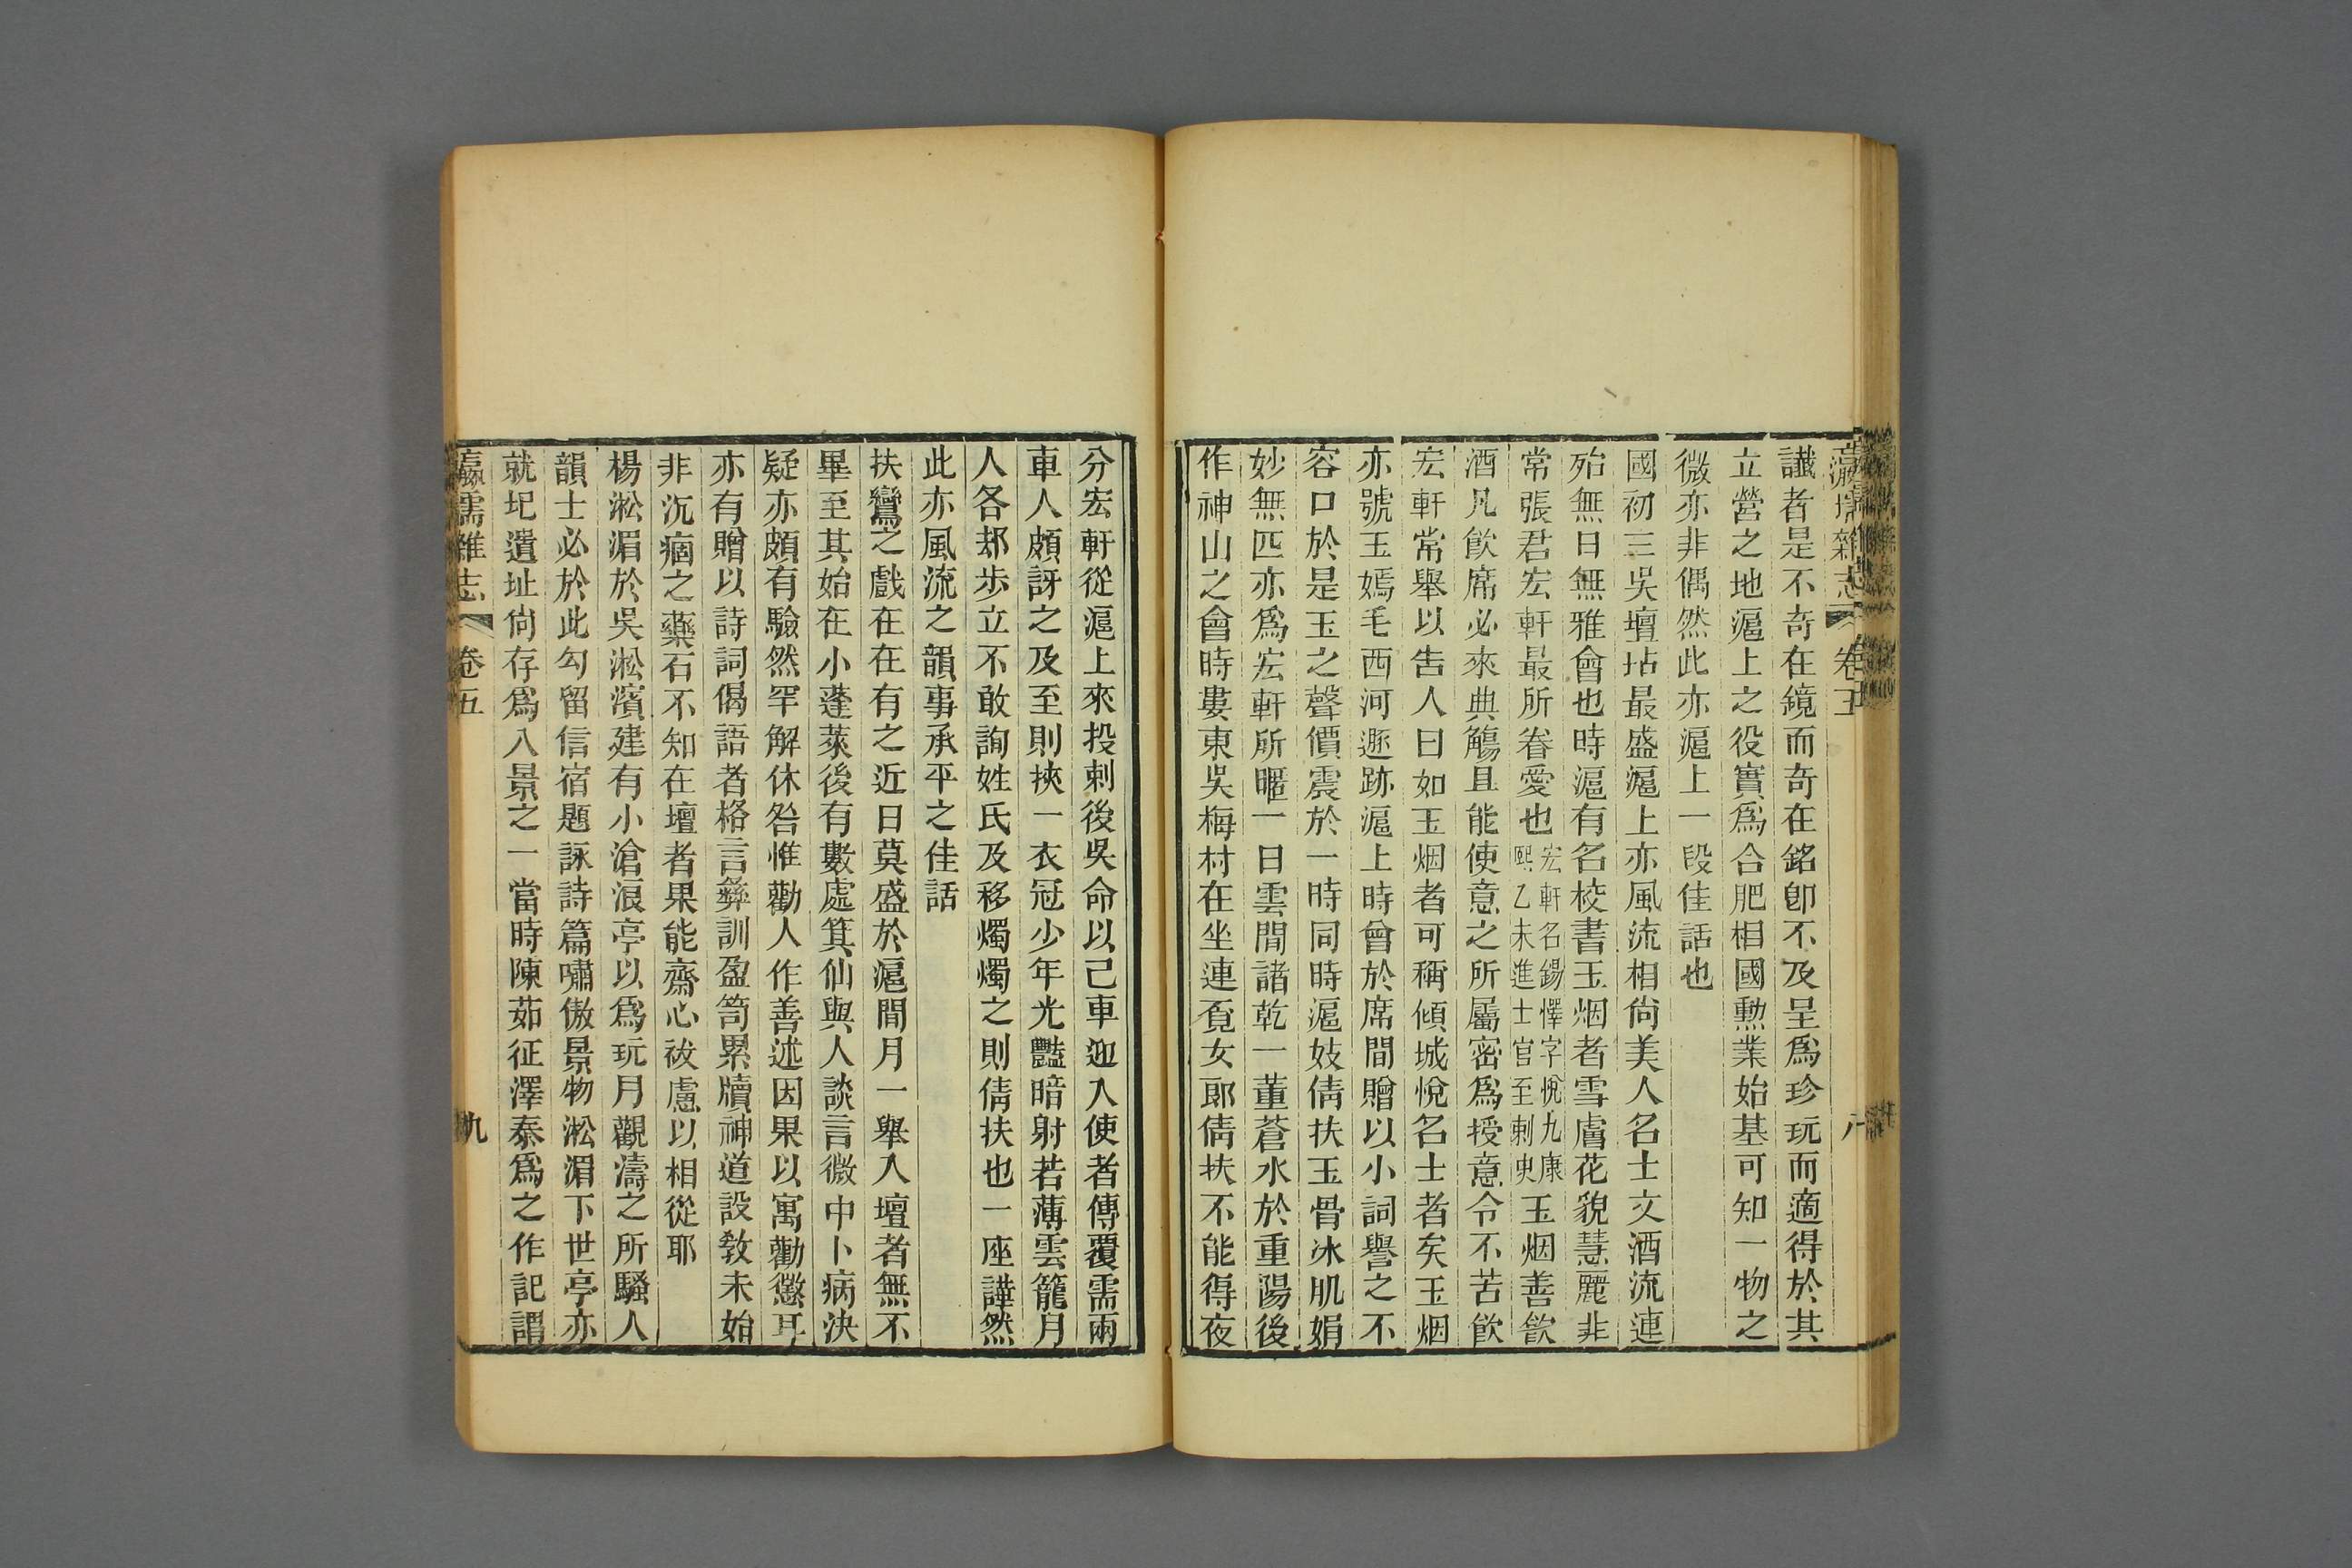 瀛壖雜志 卷五 八
讖者是不奇在鏡而奇在銘卽不及呈爲珍玩而適得於其
立營之地滬上之役實爲合肥相國勳業始基可知一物之
微亦非偶然此亦滬上一段佳話也
國初三吳壇坫最盛滬上亦風流相尙美人名士文酒流連
殆無日無雅會也時滬有名校書玉烟者雪膚花貌慧麗非
常張君宏軒最所眷愛也宏軒名錫懌字悅九康熙乙未進士官至刺史玉烟善飮
酒凡飮席必來典觴且能使意之所屬密爲授意令不苦飮
宏軒常舉以吿人曰如玉烟者可稱傾城悅名士者矣玉烟
亦號玉嫣毛西河遯跡滬上時曾於席間贈以小詞譽之不
容口於是玉之聲價震於一時同時滬妓倩扶玉骨冰肌娟
妙無匹亦爲宏軒所暱一日雲間諸乾一董蒼水於重陽後
作神山之會時婁東吳梅村在坐連覓女郞倩扶不能得夜
分宏軒從滬上來投刺後吳命以己車迎入使者傳覆需兩
車人頗訝之及至則挾一衣冠少年光豔暗射若薄雲籠月
人各却步立不敢詢姓氏及移燭燭之則倩扶也一座譁然
此亦風流之韻事承平之佳話
扶鸞之戲在在有之近日莫盛於滬間月一舉入壇者無不
畢至其始在小蓬萊後有數處箕仙與人談言微中卜病決
疑亦頗有驗然罕解休咎惟勸人作善述因果以寓勸懲耳
亦有贈以詩詞偈語者格言彝訓盈笥累牘神道設敎未始
非沉痼之藥石不知在壇者果能齋心祓慮以相從耶
楊淞湄於吳淞濱建有小滄浪亭以爲玩月觀濤之所騷人
韻士必於此勾留信宿題詠詩篇嘯傲景物淞湄下世亭亦
就圯遺址尙存爲八景之一當時陳茹征澤泰爲之作記謂
瀛壖雜志 卷五 九